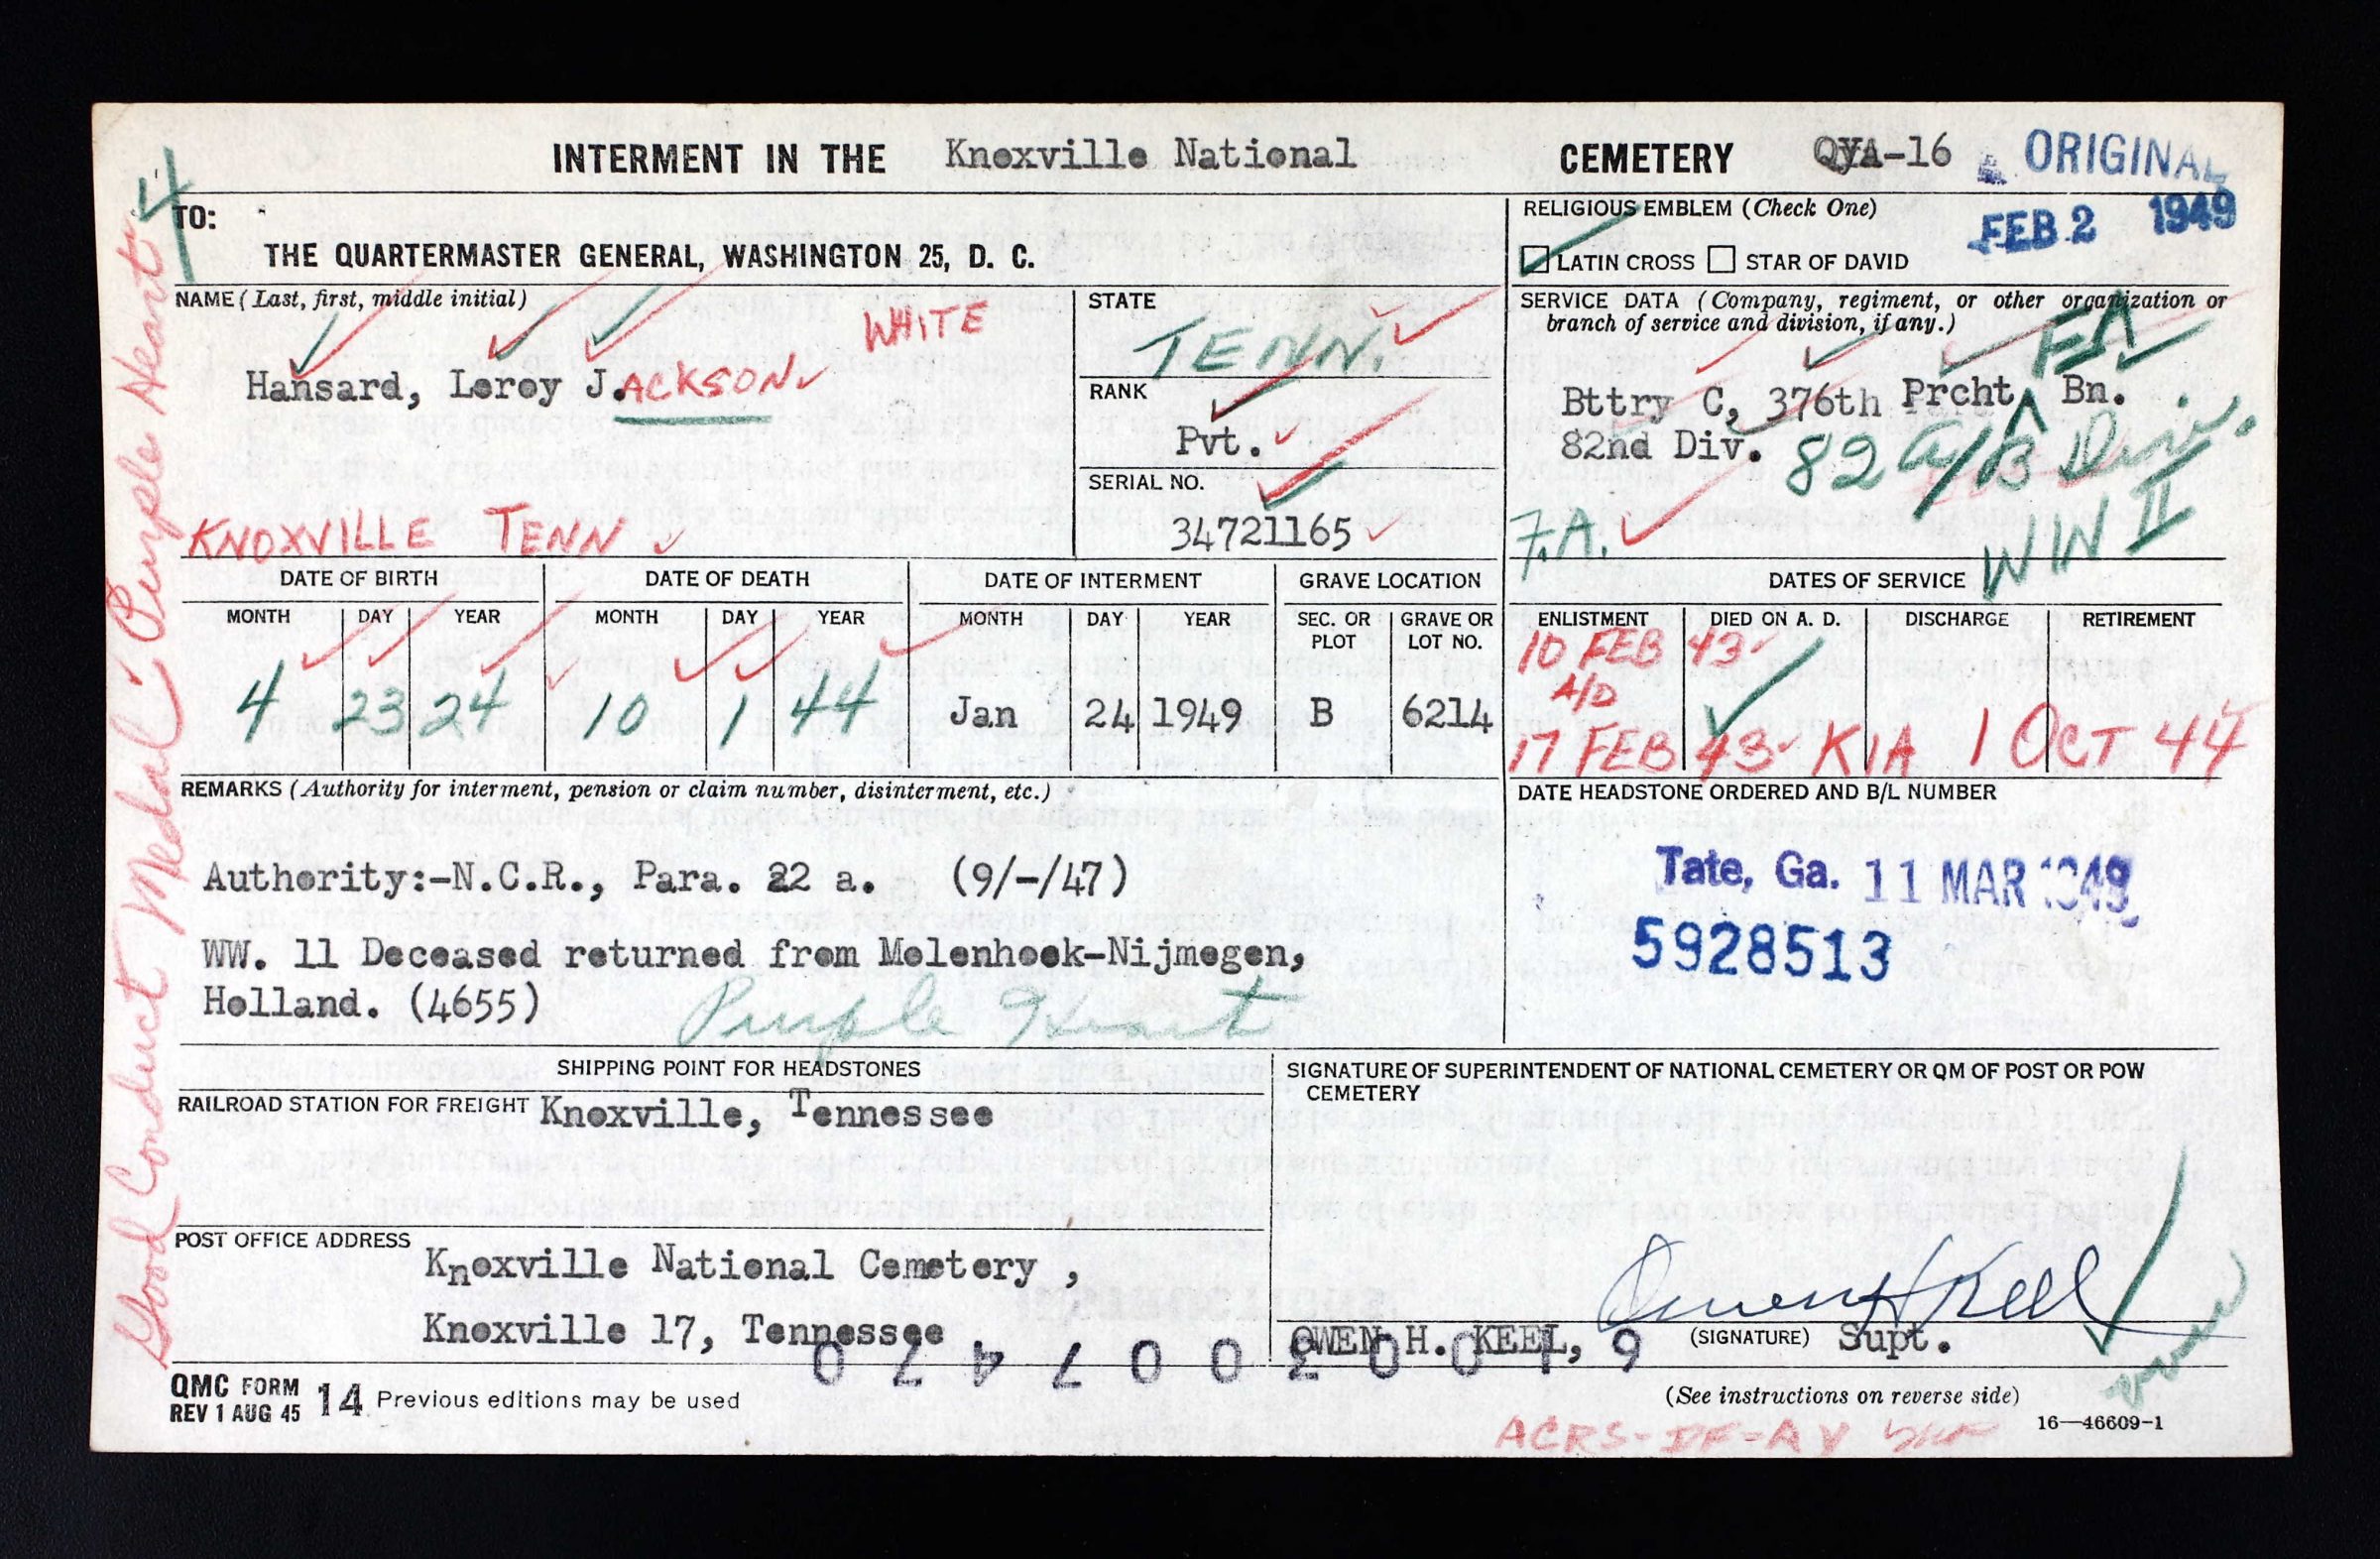 INTERMENT IN THE Knoxville National CEMETERY QYA-16 ORIGINAL
FEB 2 1949
TO:
THE QUARTERMASTER GENERAL, WASHINGTON 25, D. C.
RELIGIOUS EMBLEM (Check One)
LATIN CROSS STAR OF DAVID
NAME (Last, first, middle initial)
WHITE
Hansard, Leroy J.ACKSON
KNOXVILLE TENN
STATE
TENN.
RANK
Pvt.
SERIAL NO.
34721165
SERVICE DATA (Company, regiment, or other organization or
branch of service and division, if any.)
FA
Bttry C, 376th Prcht, Bn.
82nd Div. 82 A/B Div.
F.A. WW II
DATE OF BIRTH
MONTH DAY YEAR
4 23 24
DATE OF DEATH
MONTH DAY YEAR
10 1 44
DATE OF INTERMENT
MONTH DAY YEAR
Jan 24 1949
GRAVE LOCATION
SEC. OR PLOT GRAVE OR LOT NO.
B 6214
DATES OF SERVICE
ENLISTMENT DIED ON A. D. DISCHARGE RETIREMENT
10 FEB 43
A/D
17 FEB 43 KIA 1 OCT 44
REMARKS (Authority for interment, pension or claim number, disinterment, etc.)
Authority:-N.C.R., Para. 22 a. (9/-/47)
WW. 11 Deceased returned from Molenhoek-Nijmegen,
Holland. (4655)
Purple Heart
DATE HEADSTONE ORDERED AND B/L NUMBER
Tate, Ga. 11 MAR 1949
5928513
SHIPPING POINT FOR HEADSTONES
RAILROAD STATION FOR FREIGHT Knoxville, Tennessee
POST OFFICE ADDRESS
Knoxville National Cemetery ,
Knoxville 17, Tennessee
SIGNATURE OF SUPERINTENDENT OF NATIONAL CEMETERY OR QM OF POST OR POW
CEMETERY
Owen H Keel
OWEN H. KEEL, (SIGNATURE) Supt.
QMC FORM
REV 1 AUG 45 14 Previous editions may be used
(See instructions on reverse side)
16—46609-1
Good Conduct Medal; Purple Heart
4